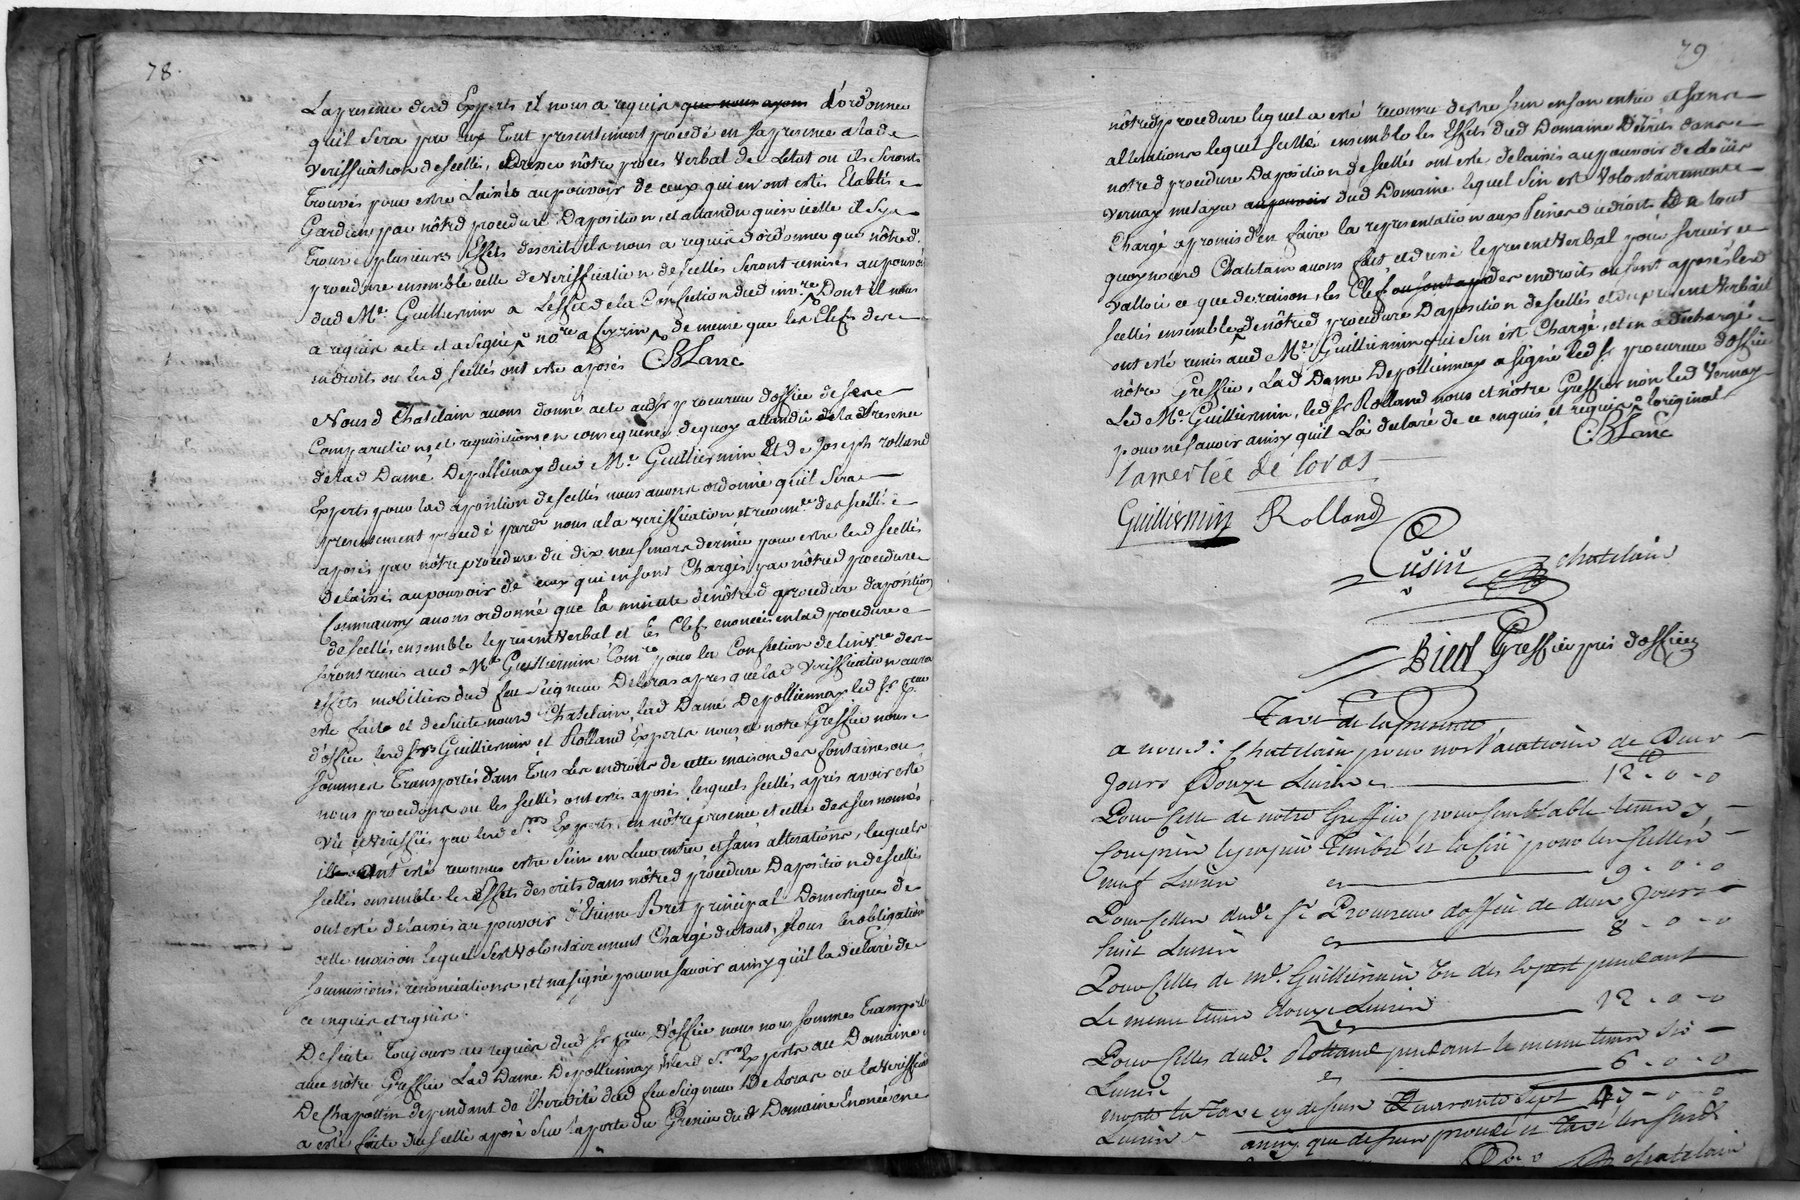 78.
La presence desd Experts il nous a requis que nous ayons d'ordonner
qu'il sera par tout presentement procedé en sa presence a la de
veriffication de scellés, et dressé nôtre procés verbal de Letat ou ils seront
trouvés pour estre Laissés au pouvoir de ceux qui en ont estés Etablis
Gardiens par nôtred procedure Daposition, et attandu qu'en icelle il sy a
trouve plusieurs Effets descrits il nous a requis d'ordonner que nôtred.
procedure ensemble celle de veriffication de scellés seront remises au pouvoir
dud Me. Guilliermin a Leffet de la Confection dud invre. Dont il nous
a requis acte et a signé de meme que les Clefs des
endroits ou lesd scellés ont esté aposés CBLanc
Nousd Chatelain avons donné acte aud sr procureur d'office de ses
Comparutions, et requisitions en consequence de quoy attandu la presence
de lad Dame Depollienay dud Me. Guilliermin Et de Joseph rolland
Experts pour lad aposition de scellés nous avons ordonné qu'il sera
presentement procedé pardt nous a la veriffication et reconce des scellés
aposés par nôtre procedure du dix neuf mars dernier pour estre lesd scellés
delaissés au pouvoir de ceux qui en sont Chargés par nôtred procedure
Comm'aussy avons ordonné que la minute de nôtred procedure daposition
de scellés, ensemble le present verbal et les Clefs enoncées en lad procedure
seront remis aud Me Guilliermin Comre pour la Confection de linvre des
effets mobiliers dud feu Seigneur Deloras apres que lad veriffication aura
esté faite et de suite nousd Chatelain, lad Dame Depolliennay led sr pcureur
d'office lesd srs Guilliermin et Rolland Experts nous et notre Greffier nous
sommes transportés dans tous les endroits de cette maison des fontaines ou
nous procedons ou les scellés ont estés aposés, lesquels scellés apres avoir esté
vû et veriffiés par lesd srs Experts, en nôtre presence et celle des sus nommés
ont esté reconnus estre sein en leur entier et sans alterations, lesquels
scellés ensemble les Effets descrits dans nôtred procedure Daposition de scellés
ont esté délaissés au pouvoir d'Etienne Bret principal Domestique de
cette maison lequel s'est volontairement Chargé du tout, sous les obligations
soumissions, renonciations, et na signé pour ne savoir ainsy qu'il la declaré de
ce enquis et requis.
De suite toujours au requis dud sr pcureur D'office nous nous sommes transportés
avec nôtre Greffier Lad Dame Depolliennay, et lesd srs Experts au Domaine
De Chapottin dependant de lhoirité dud feu Seigneur De Loras ou la veriffication
a esté faite du scellé aposé sur la porte du Grenier dud Domaine Enoncé en
79
nôtred procedure lequel a esté reconnu destre sein en son entier et sans
alterations lequel scellé ensemble les Effets dud Domaine Décrits dans
notred procedure Daposition de scellés ont esté delaissés au pouvoir de
Vernay metayer au pouvoir dud Domaine lequel s'en est volontairement
Chargé a promis d'en faire la representation aux peines de droit, De tout
quoy nousd Chatelain avons fait et dressé le present Verbal pour servir et
valloir ce que de raison, les Clefs ou sont ap des endroits ou sont apposés lesd
scellés ensemble de nôtred procedure Daposition de scellés et du present Verbail
ont esté remis aud Me. Guilliermin qui s'en est Chargé, et en a dechargé
nôtre Greffier, Lad Dame Depolliennay a signé led sr procureur d'office
Led Me. Guilliermin, led sr Rolland nous et nôtre Greffier non led Vernay
pour ne savoir ainsy qu'il La declaré de ce enquis, et requis a loriginal
CBLanc
Lameslée de loras
Guilliermin Rolland
Cusin chatelain
Bied Greffier pris d'office
Taxe de la presente
a nousd. Chatelain pour nos Vacations de Deux
Jours Douze Livres 12 - 0 - 0
Pour Celle de notre Greffier pour semblable tems y
Compris le papier Timbré et la Cire pour les scellés
neuf Livres 9 - 0 - 0
Pour Celles dudt. Sr. Procureur doffice de deux Jours
huit Livres 8 - 0 - 0
Pour Celles de me. Guilliermin Lu des Experts pendant
Le meme tems douze Livres 12 - 0 - 0
Pour Celles dudt. Rolland pendant le meme tems six
Livres 6 - 0 - 0
monte la Taxe cy dessus Quarante Sept 47 - 0 - 0
Livres ainsy que dessus procedé et taxé
chatelain